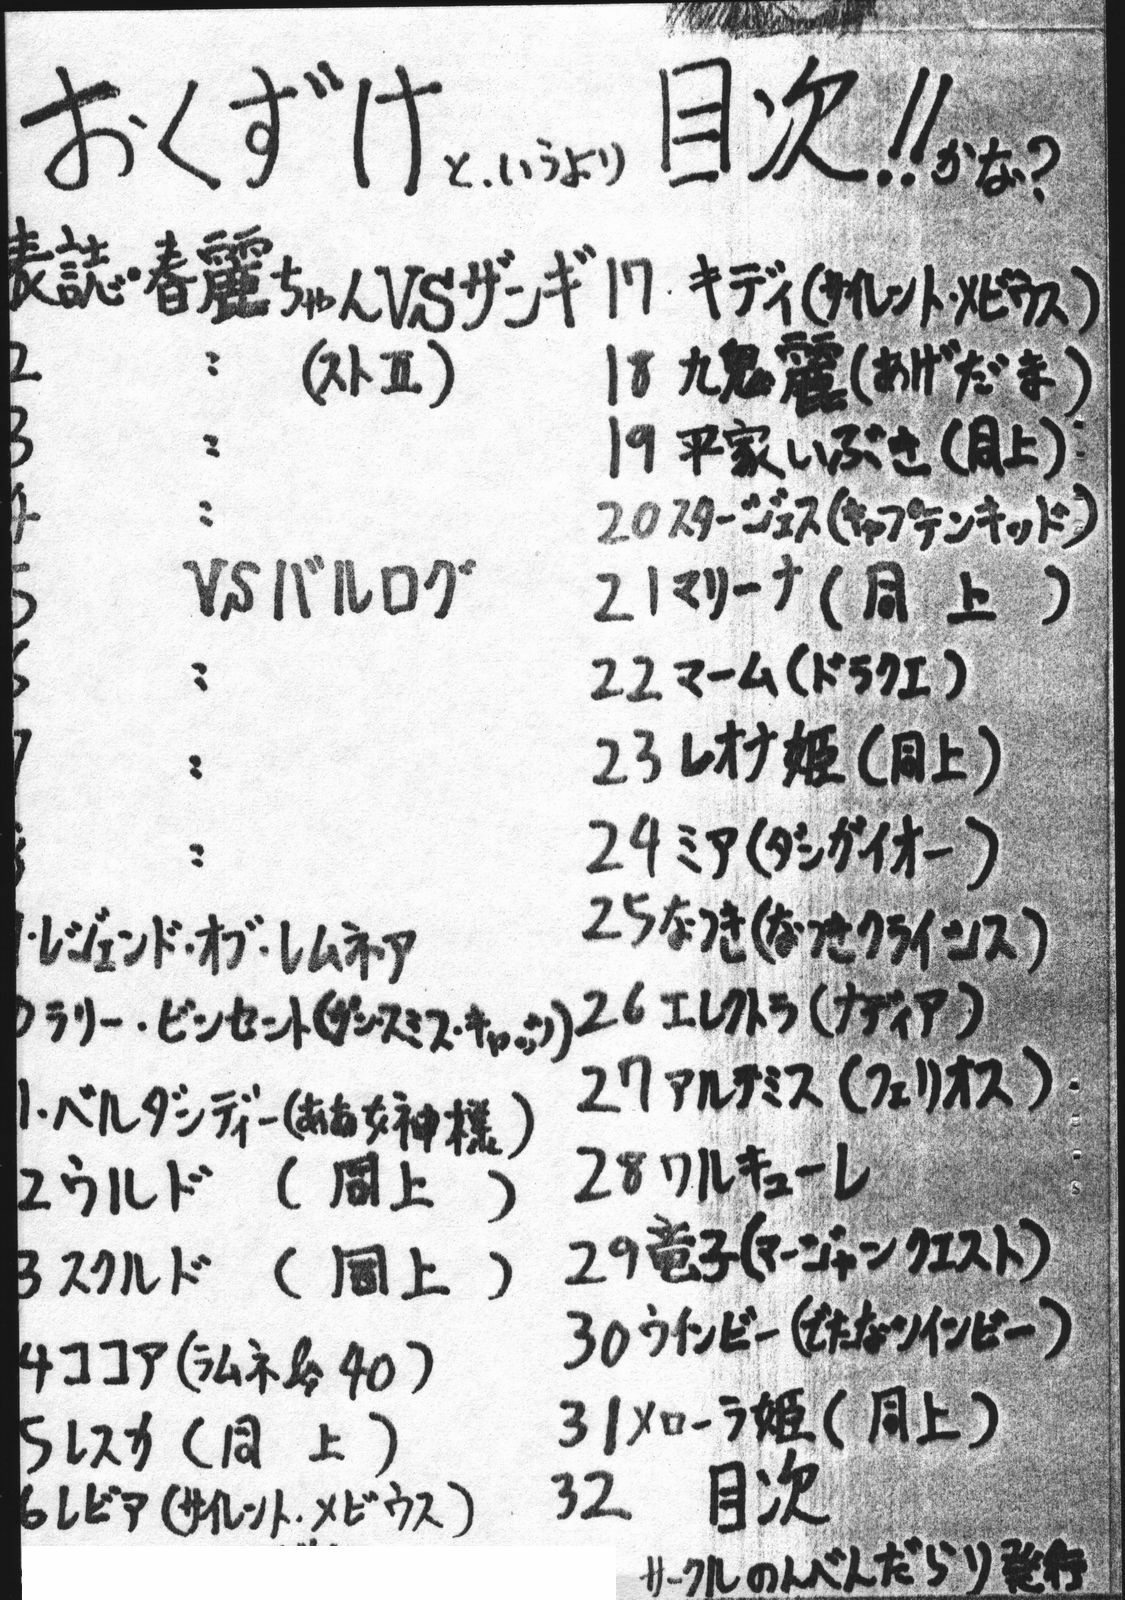 おくずけ と、いうより 目次!! かな?
表誌・春麗ちゃんVSザンギ
2 〃 (ストII)
3 〃
4 〃
5 VSバルログ
6 〃
7 〃
8 〃
・レジェンド・オブ・レムネア
0 ラリー・ビンセント(ガン・スミス・キャッツ)
1・ベルダンディー(ああ女神様)
2 ウルド (同上)
3 スクルド (同上)
4 ココア(ラムネ&40)
5 レスカ(同上)
6 レビア(サイレント・メビウス)
17 キディ(サイレント・メビウス)
18 九鬼麗(あげだま)
19 平家いぶき(同上)
20 スタージェス(キャプテンキッド)
21 マリーナ(同上)
22 マーム(ドラクエ)
23 レオナ姫(同上)
24 ミア(ダンガイオー)
25 なつき(なつきクライシス)
26 エレクトラ(ナディア)
27 アルテミス(フェリオス)
28 ワルキューレ
29 竜子(マージャンクエスト)
30 ウインビー(でたなツインビー)
31 メローラ姫(同上)
32 目次
サークルのんべんだらり発行